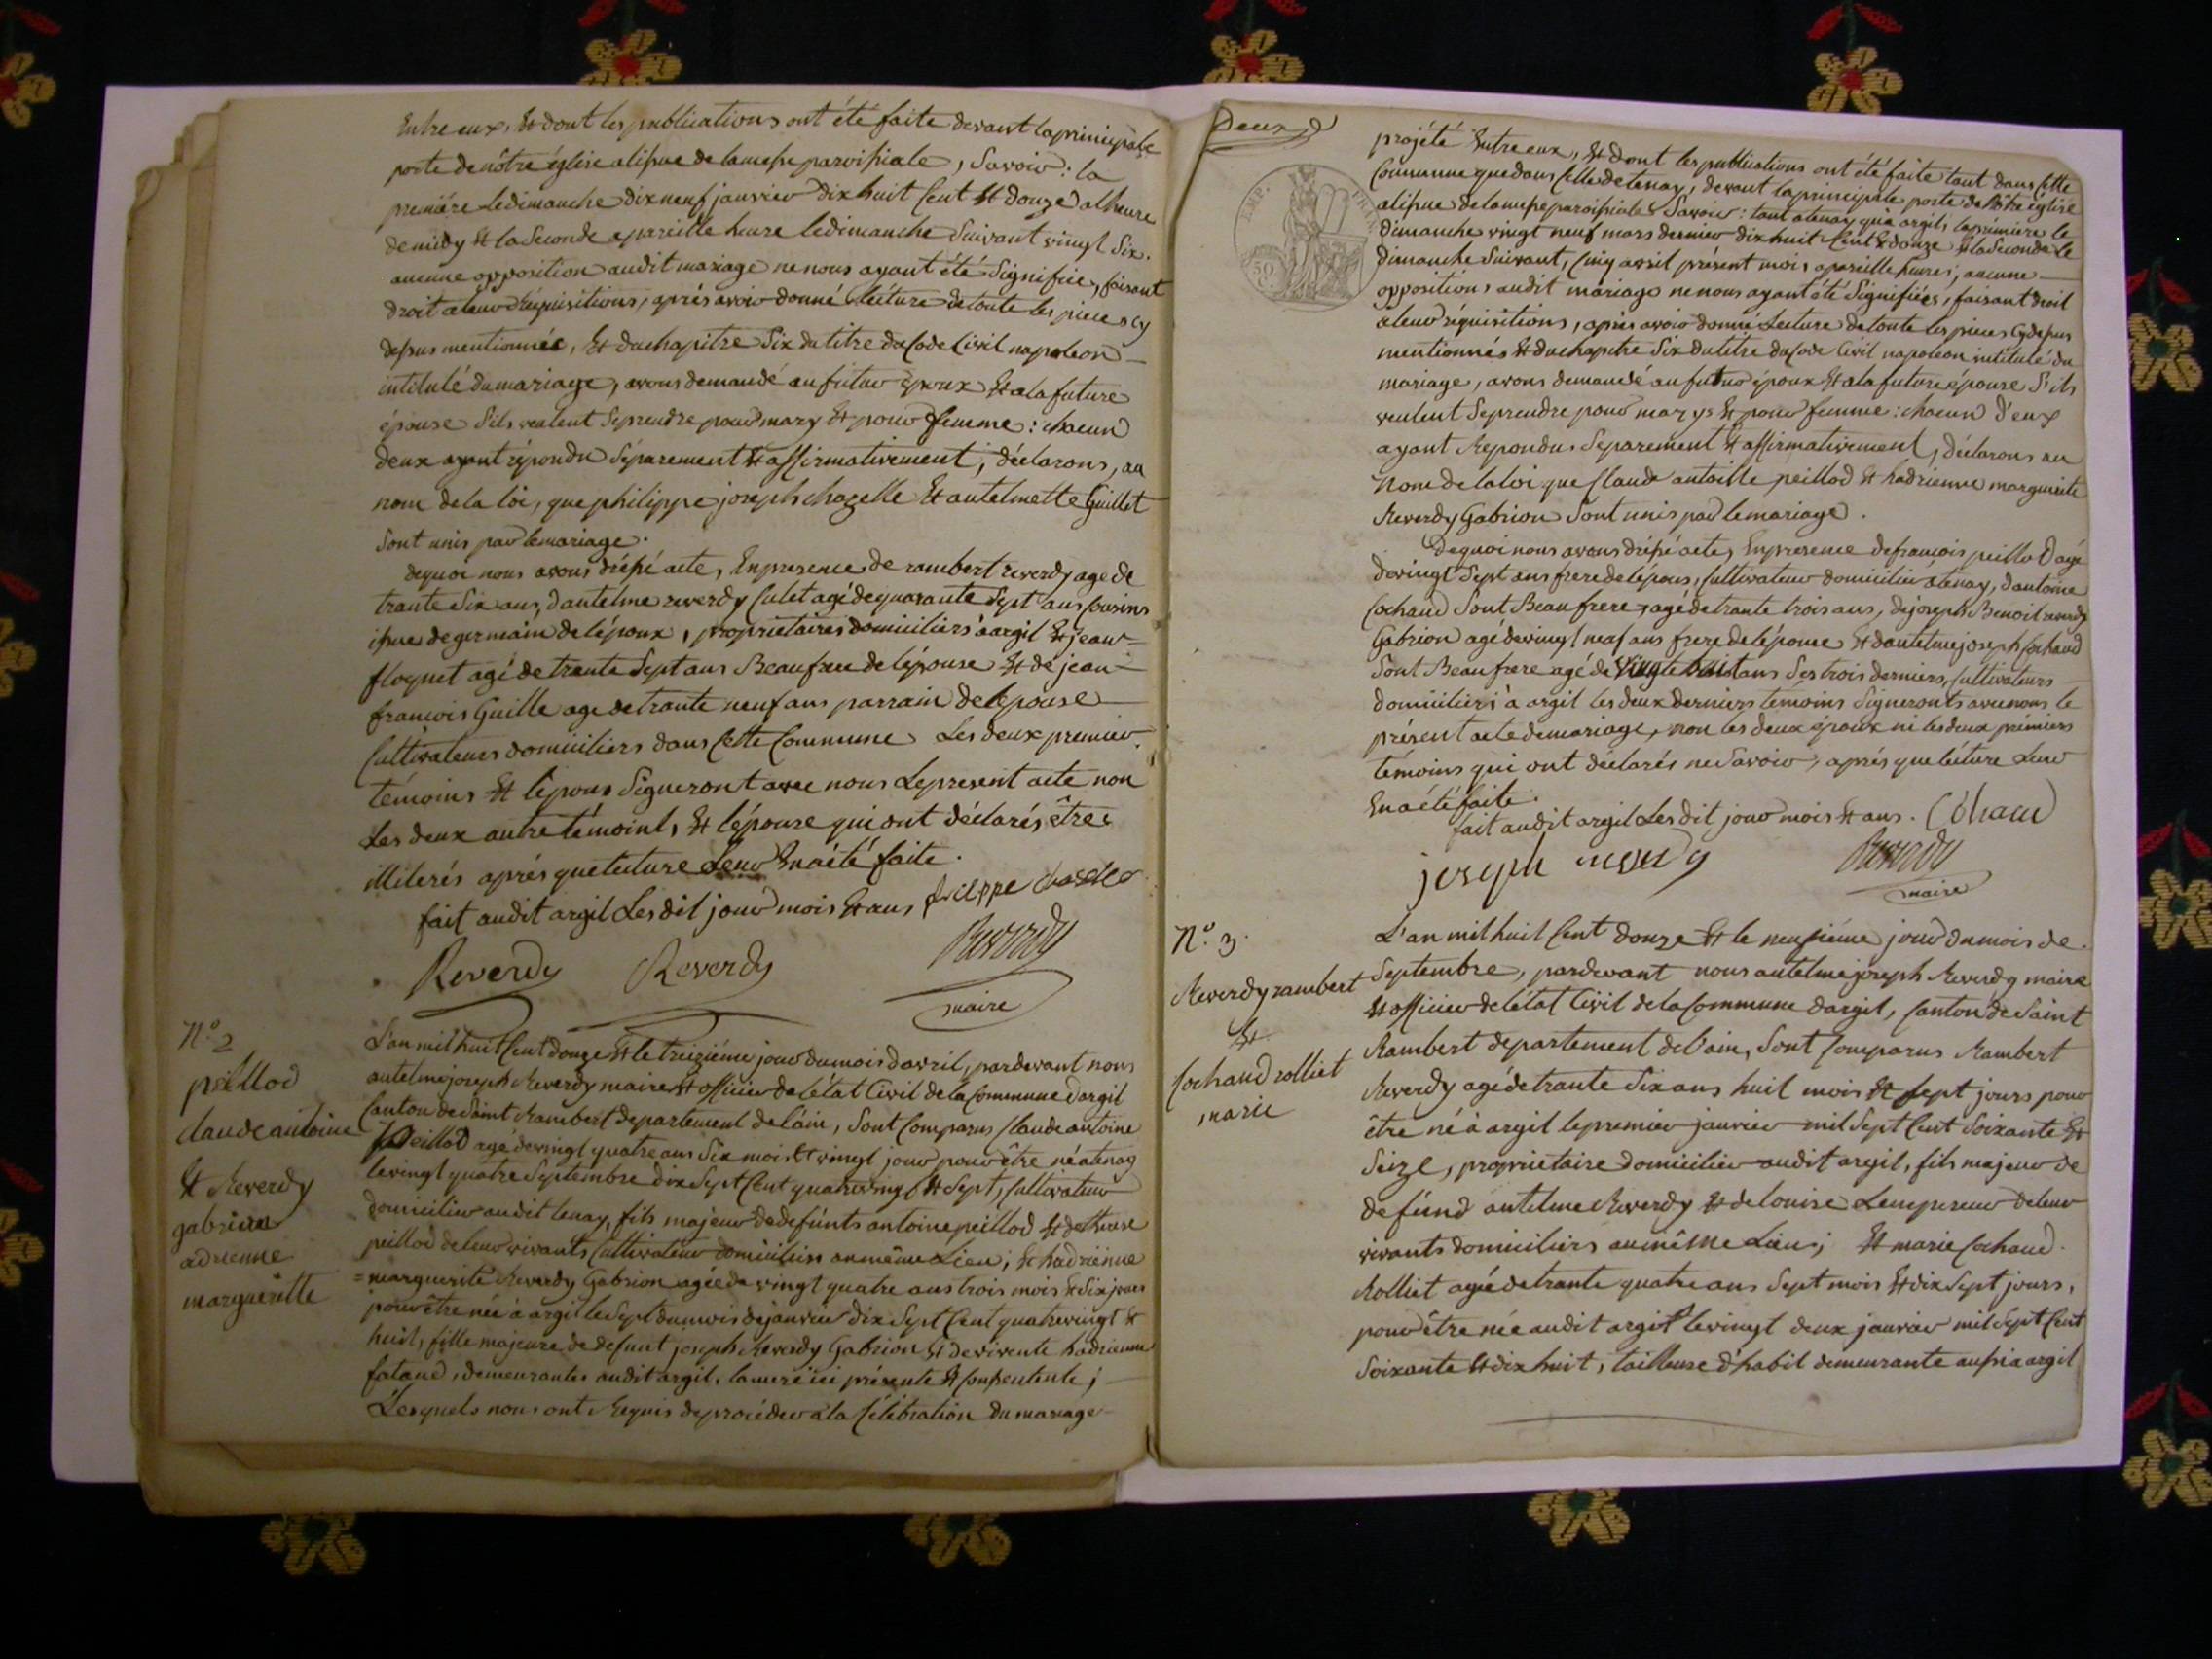 Entre eux, Et dont les publications ont été faite devant la principale
porte de nôtre église alissue de la messe paroissiale, Savoir : la
première le dimanche dix neuf janvier dix huit Cent Et douze a lheure
de midy Et la Seconde a pareille heure le dimanche Suivant vingt Six.
aucune opposition audit mariage ne nous ayant été Signifiée, faisant
droit a leur Réquisitions, après avoir donné lecture de toute les pieces cy
dessus mentionnée, Et du chapitre Six du titre du Code Civil napoleon
intitulé du mariage, avons demandé au futur époux Et a la future
épouse S'ils veulent Se prendre pour mary Et pour femme : chacun
deux ayant répondu Séparement Et affirmativement, déclarons, au
nom de la loi, que philippe joseph chazelle Et antelmette Guillet
Sont unis par le mariage.
dequoi nous avons dréssé acte, En presence de rambert reverdy age de
trante Six ans, dantelme reverdy Culet agé de quarante Sept ans Cousins
issue de germain de lépoux, proprietaires domiciliers a argil Et jean
floquet agé de trante Sept ans Beaufrere de lépouse Et de jean
francois Guille age de trante neuf ans parrain de lepouse
Cultivateurs domiciliers dans Cette Commune Les deux premier
témoins Et lépoux Signeront avec nous Le present acte non
Les deux autre témoins, Et lépouse qui ont déclarés être
illiterés après que lecture Leur En a été faite.
fait audit argil Les dit jour mois Et ans
Reverdy Reverdy Reverdy
maire
N.º 2
peillod
claude antoine
Et Reverdy
gabrion
adrienne
margueritte
L'an mil huit Cent douze Et le treiziéme jour du mois davril, pardevant nous
antelme joseph Reverdy maire Et officier de létat Civil de la Commune dargil
Canton de Saint Rambert departement de láin, Sont Comparus Claude antoine
Peillod agé de vingt quatre ans Six mois Et vingt jour pour être né a tenay
le vingt quatre Septembre dix Sept Cent quatrevingt Et Sept, Cultivateur
domicilier audit tenay, fils majeur de defunts antoine peillod Et de therese
peillod de leur vivants Cultivateur domiciliers au même Lieu ; Et hadrienne
=marguerite Reverdy Gabrion agée de vingt quatre ans trois mois Et Six jours
pour être née à argil le Sept du mois de janvier dix Sept Cent quatrevingt Et
huit, fille majeure de defunt joseph Reverdy Gabrion Et de vivente hadrienne
, demeurantes audit argil, la mere ici présente Et Consentente ;
Lesquels nous ont Requis de procéder a la Célébration du mariage
Deux
projété Entre eux, Et dont les publications ont été faite tant dans Cette
Commune que dans Celle de tenay, devant la principale porte de Nôtre église
alissue de la messe paroissiale, Savoir : tant a tenay qu'a argil, la première le
dimanche vingt neuf mars dernier dix huit Cent Et douze Et la Seconde le
dimanche Suivant, Cinq avril présent mois a pareille heures ; aucune
oppositions audit mariage ne nous ayant été Signifiées, faisant droit
a leur réquisitions, après avoir donné Lecture de toute les pieces Cy dessus
mentionnés Et du chapitre Six du titre du Code Civil napoleon intitulé du
mariage, avons demandé au futur époux Et a la future épouse S'ils
veulent Se prendre pour marys Et pour femme : chacun d'eux
ayant Repondus Separement Et affirmativement, déclarons au
Nom de la loi que Claude antoine peillod Et hadrienne marguerite
Reverdy Gabrion Sont unis par le mariage.
De quoi nous avons dréssé acte, En presence de francois peillod agé
de vingt Sept ans frere de lépoux, Cultivateur domicilier a tenay, dantoine
Cochaud Sont Beau frere, agé de trante trois ans, de joseph Benoit reverdy
Gabrion agé de vingt neuf ans frere de lépouse Et dantelme joseph Cochaud
Sont Beau frere agé de vingt huit ans Ses trois derniers, Cultivateurs
domiciliers à argil les deux derniers témoins Signeronts avec nous le
présent acte de mariage, non les deux époux ni les deux premiers
témoins qui ont déclarés ne Savoir, après que lécture Leur
En a été faite.
fait audit argil Les dit jour mois Et ans.
joseph Reverdy
maire
EMP. FRAN
50 C.
N.º 3.
Reverdy rambert
Et
Cochaud rolliet
marie
L'an mil huit Cent douze Et le neufiéme jour du mois de
Septembre, pardevant nous antelme joseph Reverdy maire
Et officier de létat Civil de la Commune dargil, Canton de Saint
Rambert departement de l'ain, Sont Comparus Rambert
Reverdy agé de trante Six ans huit mois Et Sept jours pour
être né à argil le premier janvier mil Sept Cent Soixante Et
Seize, proprietaire domicilier audit argil, fils majeur de
defúnd antelme Reverdy Et de louise Lempereur de leur
vivants domiciliers au même Lieu ; Et marie Cochaud.
Rolliet agée de trante quatre ans Sept mois Et dix Sept jours,
pour être née audit argil le vingt deux janvier mil Sept Cent
Soixante Et dix huit, tailleuse d'habit demeurante aussi a argil